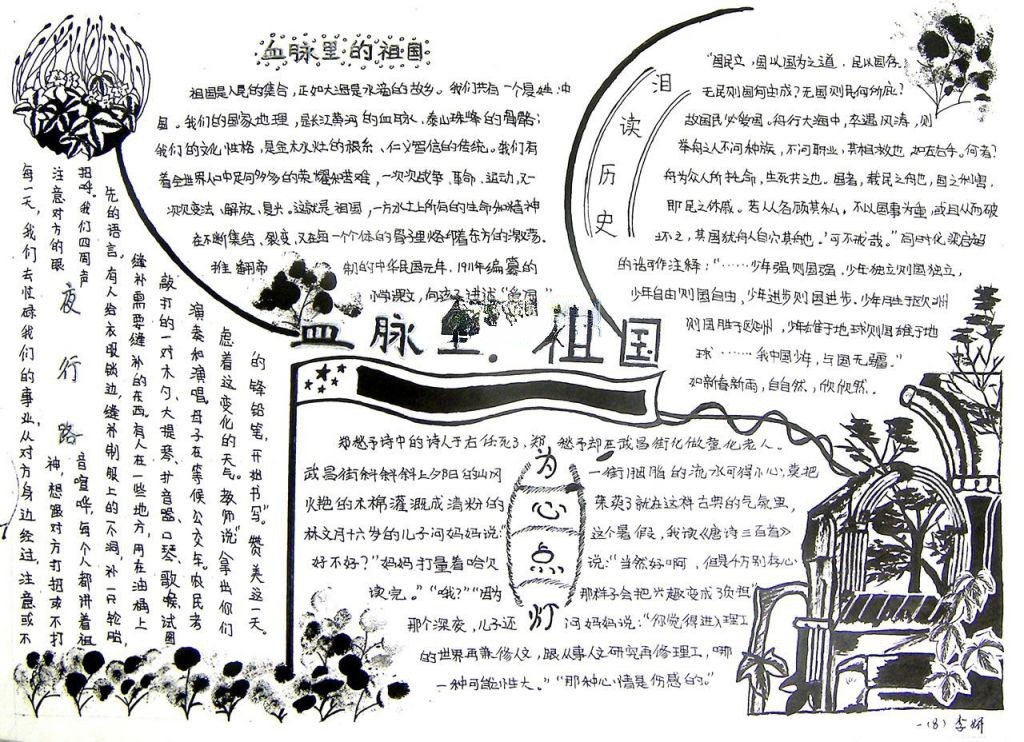 血脉里的祖国
祖国是人民的集合，正如大海是水滴的故乡。我们共有一个夏雄：中
国。我们的国家地理，是长江黄河的血脉、泰山珠峰的骨骼；
我们的文化性格，是金木水火的根系、仁义智信的传统。我们有
着全世界人口中足同多多的荣耀和苦难，一次次战争、革命、运动，又一
次次变法、解放、复兴。这就是祖国，一方水土上所有的生命和精神
在不断集结、裂变，又在每一个个体的骨子里烙印着东方的激荡。
推翻帝
制的中华民国元年，1911年编纂的
小学课文，向孩子讲述“爱国”
泪读历史
“国民立，国以国为之道，民以国存，
无民则国何由成？无国则民何所庇？
故国民必爱国。舟行大海中，卒遇风涛，则
举舟之人不问种族，不问职业，其相救也，如左右手。何者？
舟为众人所托命，生死共之也。国者，载民之舟也，国之利害，
即民之休戚。若人各顾其私，不以国事为重，或且从而破
坏之，其国犹舟人自穴其舟也。可不戒哉。”同时代梁启超
的话可作注解：“……少年强则国强，少年独立则国独立，
少年自由则国自由，少年进步则国进步，少年胜于欧洲
则国胜于欧洲，少年雄于地球则国雄于地
球……我中国少年，与国无疆。”
如新春新雨，自自然，欣欣然。
血脉里·祖国
夜行路
先的语言，有人给衣服锁边，缝补制服上的一个洞，补一只轮胎
缝补需要缝补的东西。有人在一些地方，用在油桶上
敲打的一对木勺、大提琴、扩音器、口琴、歌喉，试图
演奏和演唱。母子在等候公交车。农民考
虑着这变化的天气。教师说“拿出你们
的锋铅笔，开始书写。”赞美这一天。
每一天，我们去忙碌我们的事业，从对方身边经过，注意或不
注意对方的眼
神，想跟对方打招或不打
招呼。我们四周声
音喧哗，每个人都讲着祖
为心点灯
郑愁予诗中的诗人于右任死了，郑愁予却在武昌街化做叠化老人。
武昌街斜斜斜上夕阳的山冈
一街胭脂的流水可得小心：莫把
火艳的木棉灌溉成清粉的
茱萸了就在这样古典的气氛里，
林文月十六岁的儿子问妈妈说“
这个暑假，我读《唐诗三百首》
好不好？”妈妈打量着哈欠
说：“当然好啊，但是千万别存心
读完。”“哦？”“因为
那样子会把兴趣变成了负担”
那个深夜，儿子还
问妈妈说：“你觉得进入理工
的世界再兼修人文，跟从事人文研究再修理工，哪
一种可能性大。”“那种心情是伤感的。”
一（8）李妍